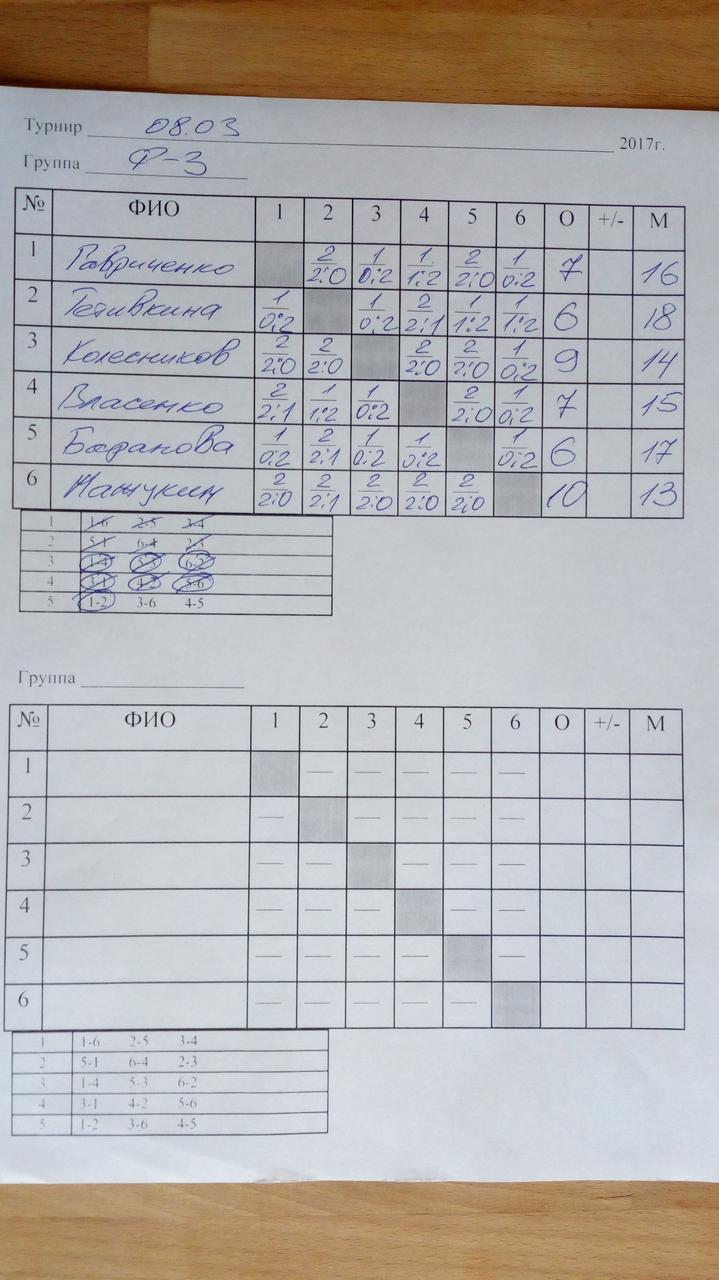 Турнир 08.03 2017г.
Группа Ф-3
№ ФИО 1 2 3 4 5 6 О +/- М
1 Гавриченко 2 2:0 1 0:2 1 1:2 2 2:0 1 0:2 7 16
2 Тетивкина 1 0:2 1 0:2 2 2:1 1 1:2 1 1:2 6 18
3 Колесников 2 2:0 2 2:0 2 2:0 2 2:0 1 0:2 9 14
4 Власенко 2 2:1 1 1:2 1 0:2 2 2:0 1 0:2 7 15
5 Баданова 1 0:2 2 2:1 1 0:2 1 0:2 1 0:2 6 17
6 Мажукин 2 2:0 2 2:1 2 2:0 2 2:0 2 2:0 10 13
1 1-6 2-5 3-4
2 5-1 6-4 2-3
3 1-4 5-3 6-2
4 3-1 4-2 5-6
5 1-2 3-6 4-5
Группа
№ ФИО 1 2 3 4 5 6 О +/- М
1 — — — — —
2 — — — — —
3 — — — — —
4 — — — — —
5 — — — — —
6 — — — — —
1 1-6 2-5 3-4
2 5-1 6-4 2-3
3 1-4 5-3 6-2
4 3-1 4-2 5-6
5 1-2 3-6 4-5